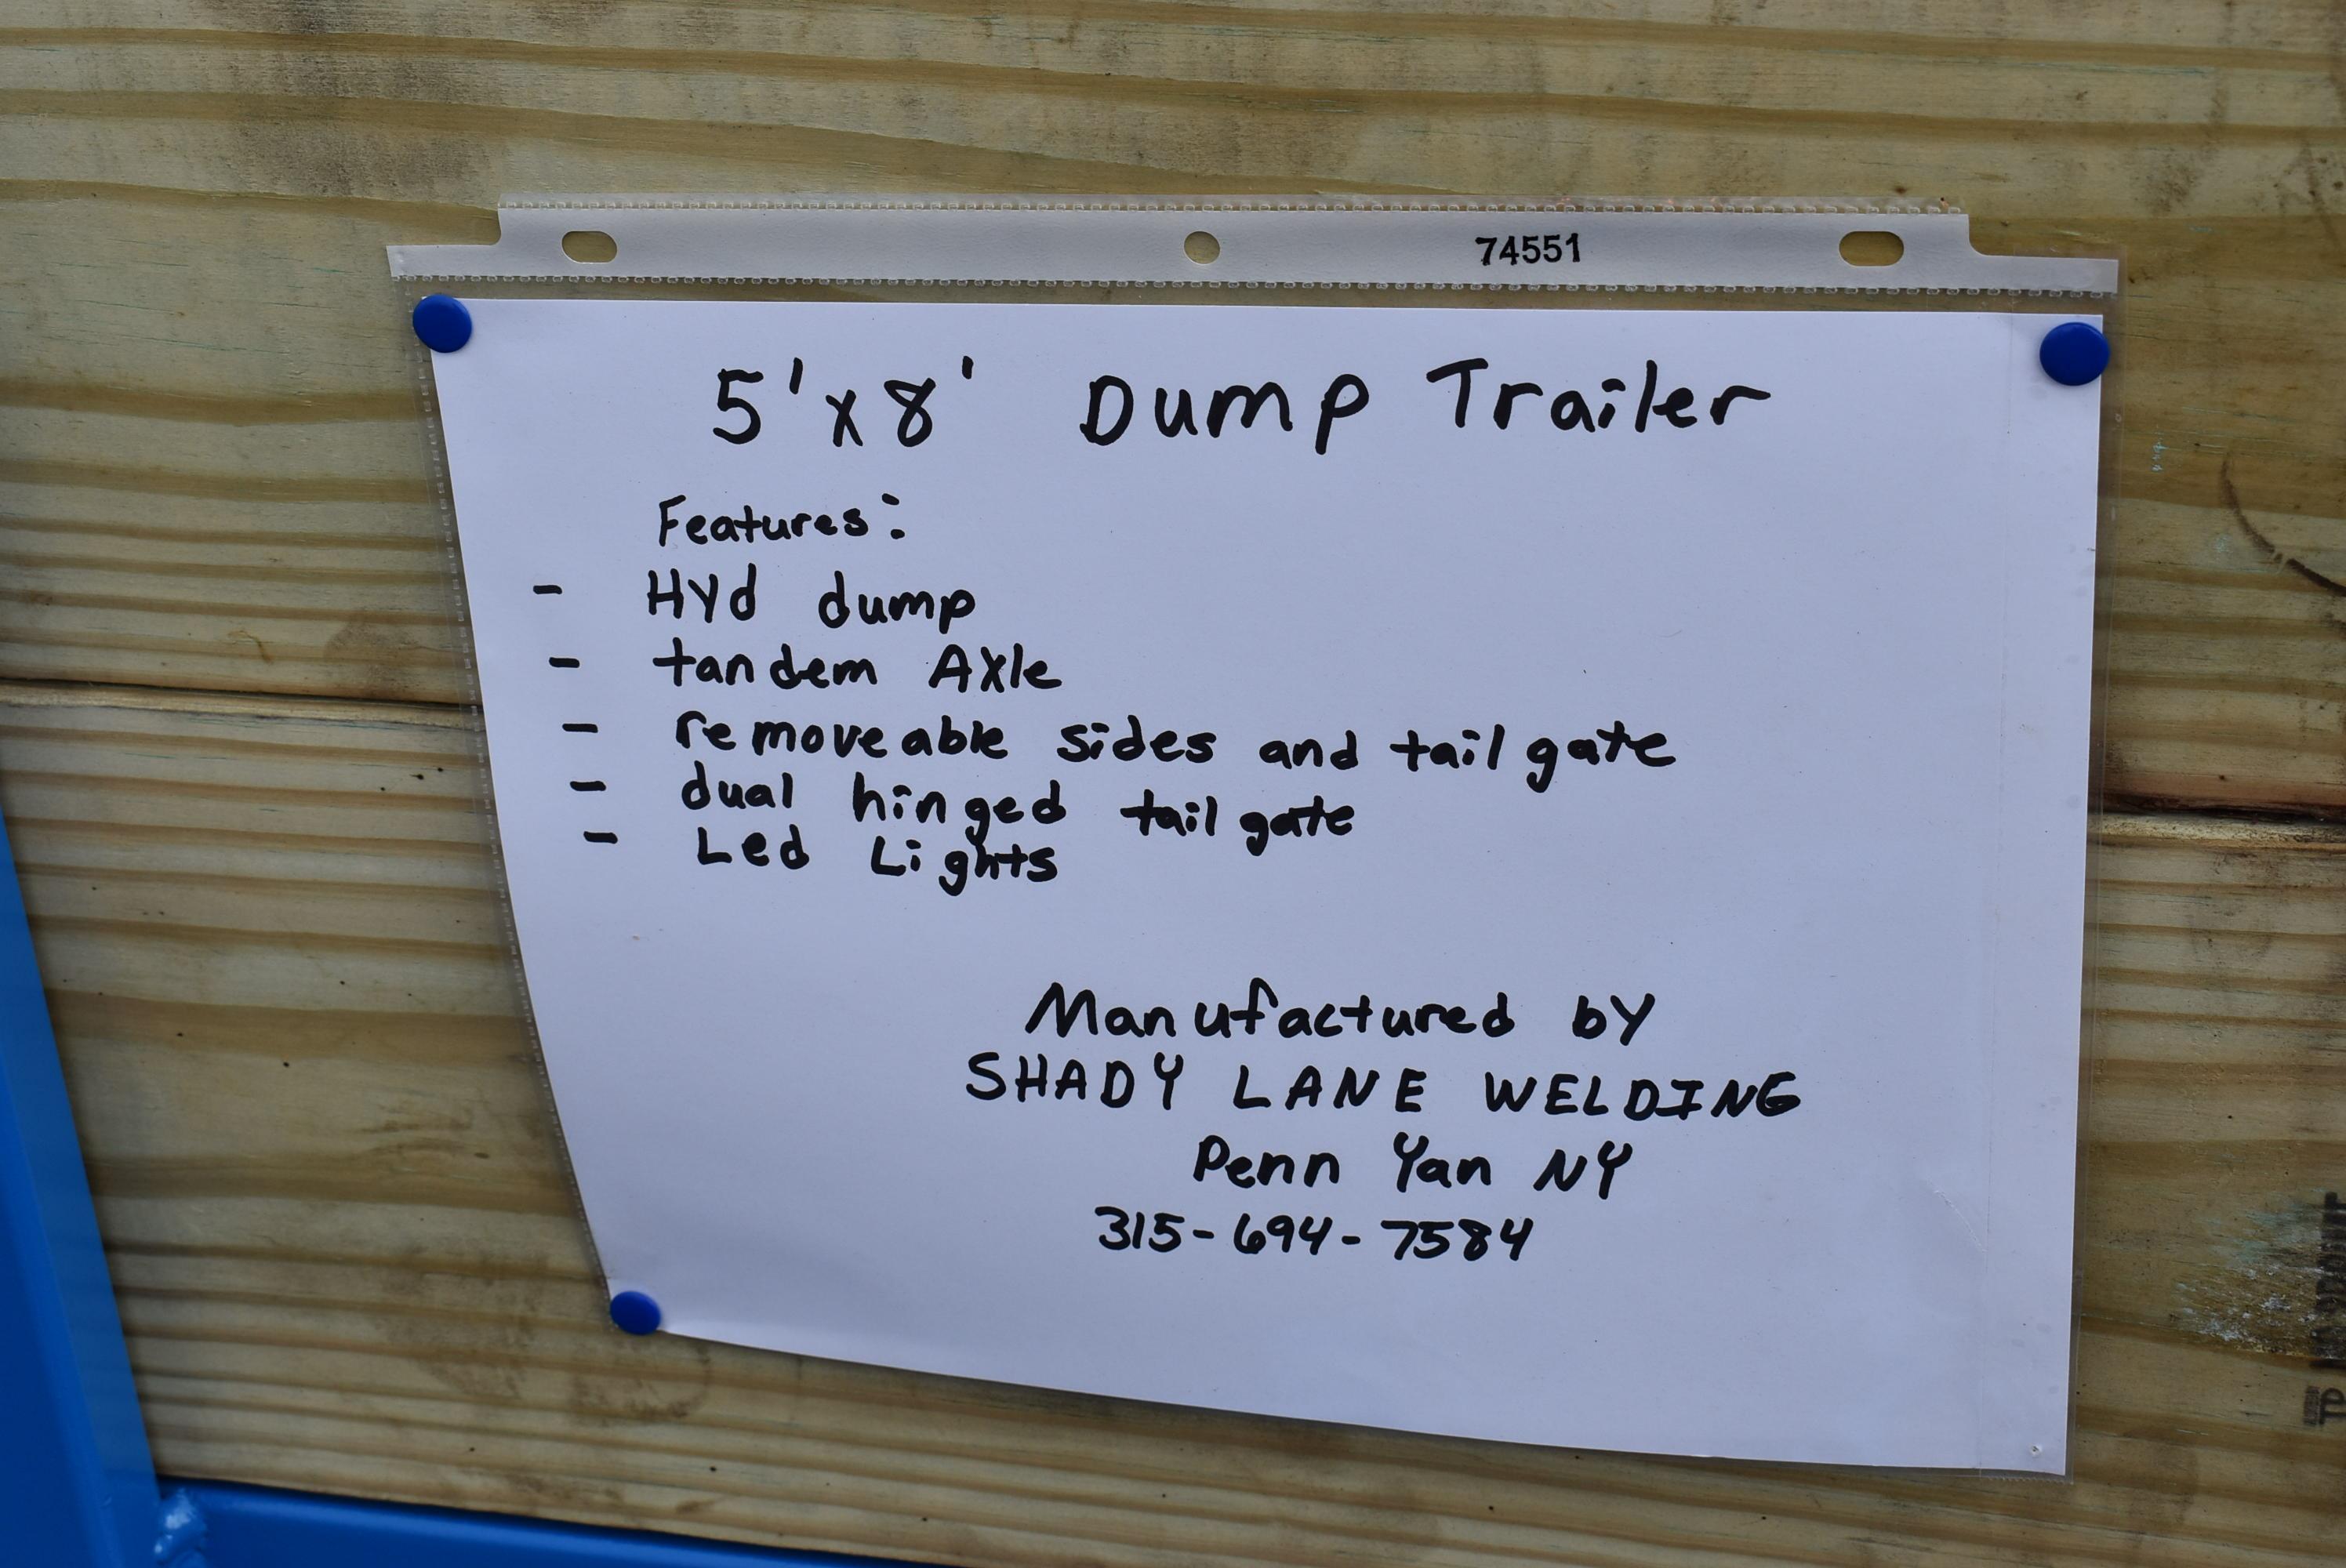 74551
5'x8' Dump Trailer
Features:
- Hyd dump
- tandem Axle
- removeable sides and tailgate
- dual hinged tailgate
- Led Lights
Manufactured by
SHADY LANE WELDING
Penn Yan NY
315-694-7584